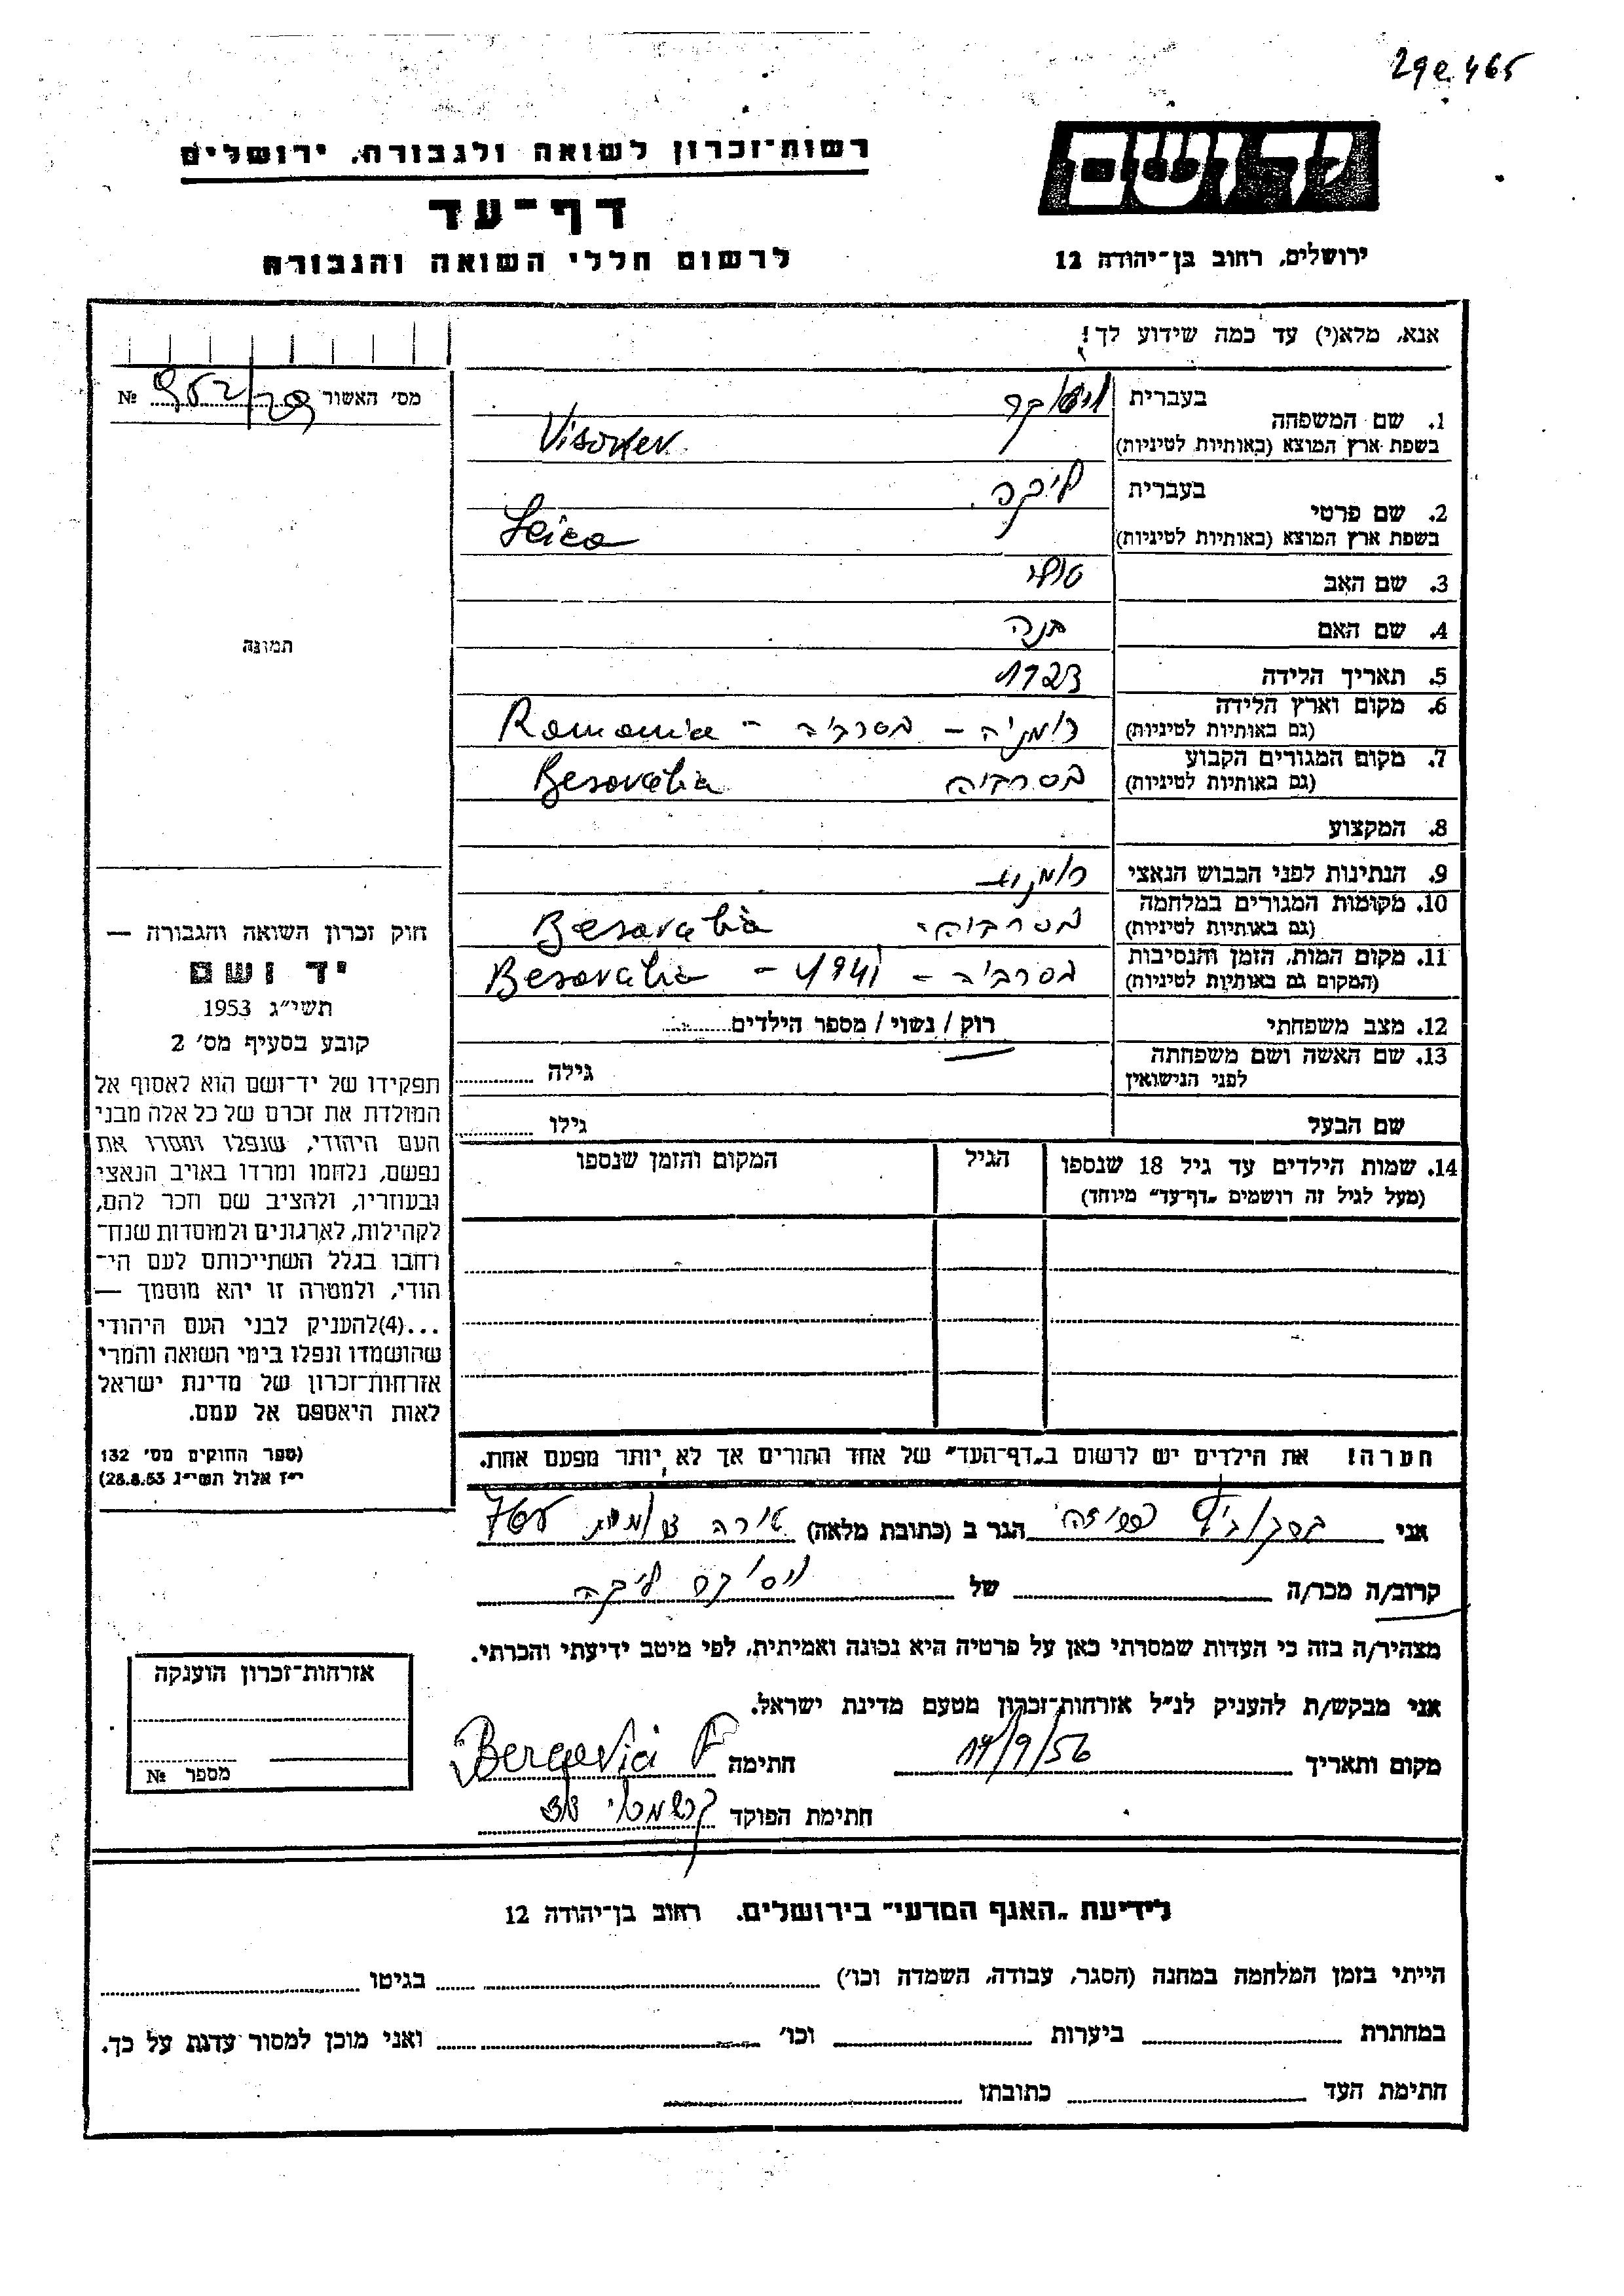 רשות־זכרון לשואה ולגבורה, ירושלים
יד ושם
דף־עד
לרשום חללי השואה והגבורה
ירושלים, רחוב בן־יהודה 12
אנא, מלא(י) עד כמה שידוע לך!
מס' האשור № 952/29
1. שם המשפחה
בעברית
בשפת ארץ המוצא (באותיות לטיניות)
2. שם פרטי
בעברית ליבה
בשפת ארץ המוצא (באותיות לטיניות)
3. שם האב
4. שם האם חנה
5. תאריך הלידה 1923
6. מקום וארץ הלידה רומניה – בסרביה – Romania
(גם באותיות לטיניות)
7. מקום המגורים הקבוע בסרביה Besarabia
(גם באותיות לטיניות)
8. המקצוע
9. הנתינות לפני הכבוש הנאצי
10. מקומות המגורים במלחמה בסרביה Besarabia
(גם באותיות לטיניות)
11. מקום המות, הזמן והנסיבות בסרביה – 1941 – Besarabia
(המקום גם באותיות לטיניות)
12. מצב משפחתי רוק / נשוי / מספר הילדים
13. שם האשה ושם משפחתה גילה
לפני הנישואין
שם הבעל גילו
14. שמות הילדים עד גיל 18 שנספו הגיל המקום והזמן שנספו
(מעל לגיל זה רושמים „דף־עד" מיוחד)
הערה! את הילדים יש לרשום ב„דף־העד" של אחד ההורים אך לא יותר מפעם אחת.
תמונה
חוק זכרון השואה והגבורה —
יד ושם
תשי״ג 1953
קובע בסעיף מס' 2
תפקידו של יד־ושם הוא לאסוף אל
המולדת את זכרם של כל אלה מבני
העם היהודי, שנפלו ומסרו את
נפשם, נלחמו ומרדו באויב הנאצי
ובעוזריו, ולהציב שם וזכר להם,
לקהילות, לארגונים ולמוסדות שנח־
רחבו בגלל השתייכותם לעם הי־
הודי, ולמטרה זו יהא מוסמך —
...(4)להעניק לבני העם היהודי
שהושמדו ונפלו בימי השואה והמרי
אזרחות־זכרון של מדינת ישראל
לאות היאספם אל עמם.
(ספר החוקים מס' 132
י״ז אלול תשי״ג 28.8.53)
אני הגר ב (כתובת מלאה) טירה
קרוב/ה מכר/ה של ליבה
מצהיר/ה בזה כי העדות שמסרתי כאן על פרטיה היא נכונה ואמיתית, לפי מיטב ידיעתי והכרתי.
אני מבקש/ת להעניק לנ״ל אזרחות־זכרון מטעם מדינת ישראל.
מקום ותאריך 14/9/56 חתימה
חתימת הפוקד
אזרחות־זכרון הוענקה
מספר №
לידיעת „האגף המדעי" בירושלים, רחוב בן־יהודה 12
הייתי בזמן המלחמה במחנה (הסגר, עבודה, השמדה וכו') בגיטו
במחתרת ביערות וכו' ואני מוכן למסור עדות על כך.
חתימת העד כתובתו